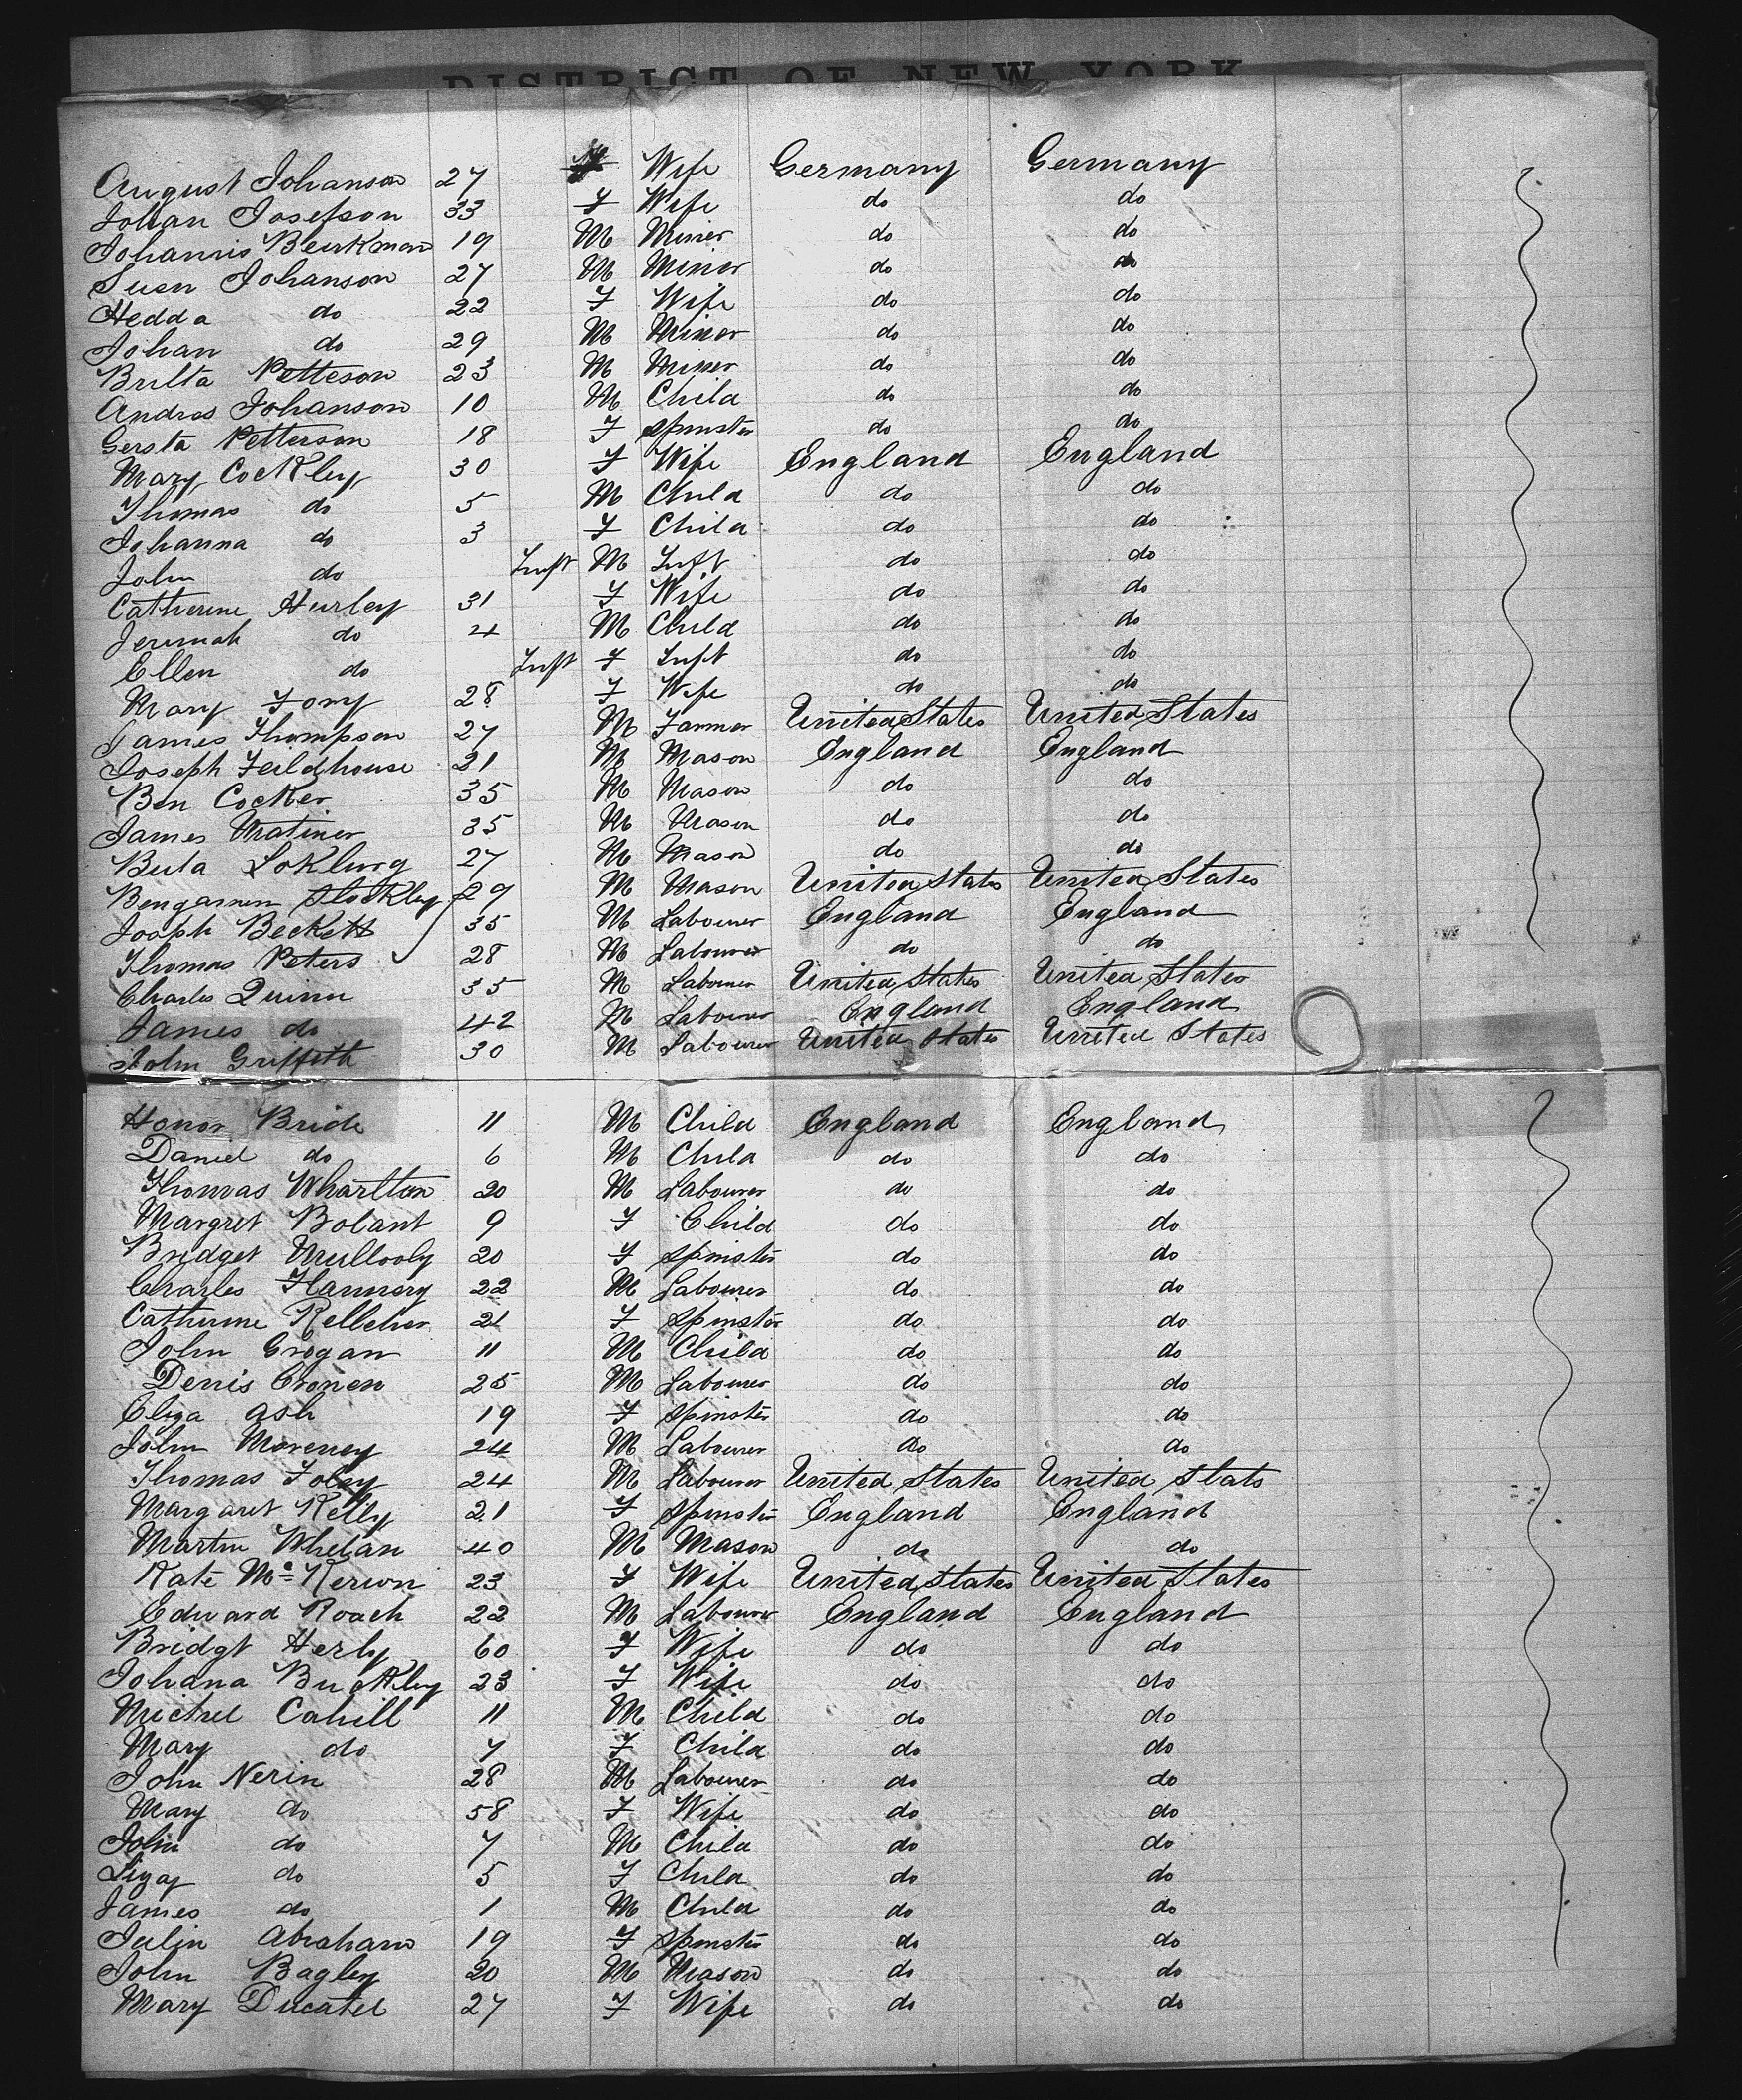 DISTRICT OF NEW YORK
August Johanson 27 Wife Germany Germany
Johan Josefson 33 F Wife do do
Johannis Beurkman 19 M Miner do do
Suen Johanson 27 M Miner do do
Hedda do 22 F Wife do do
Johan do 29 M Miner do do
Brilta Petteson 23 M Miner do do
Andras Johanson 10 M Child do do
Gersta Petterson 18 F Spinster do do
Mary Cockley 30 F Wife England England
Thomas do 5 M Child do do
Johanna do 3 F Child do do
John do Inft M Inft do do
Catherine Hurley 31 F Wife do do
Jerimah do 4 M Child do do
Ellen do Inft F Inft do do
Mary Fory 28 F Wife do do
James Thompson 27 M Farmer United States United States
Joseph Feildhouse 21 M Mason England England
Ben Cocker 35 M Mason do do
James Matiner 35 M Mason do do
Buta Lokburg 27 M Mason do do
Bengarmin Stockley 29 M Mason United States United States
Joseph Beckett 35 M Labourer England England
Thomas Peters 28 M Labourer do do
Charles Quinn 35 M Labourer United States United States
James do 42 M Labourer England England
John Griffeth 30 M Labourer United States United States
Honor Bride 11 M Child England England
Daniel do 6 M Child do do
Thomas Wharlton 20 M Labourer do do
Margret Bolant 9 F Child do do
Bridget Mullooly 20 F Spinster do do
Charles Flannery 22 M Labourer do do
Catherine Kelleher 21 F Spinster do do
John Grogan 11 M Child do do
Denis Cronen 25 M Labourer do do
Eliza Ash 19 F Spinster do do
John Moreney 24 M Labourer do do
Thomas Foley 24 M Labourer United States United Stats
Margaret Kelly 21 F Spinster England England
Martin Whelan 40 M Mason do do
Kate Mc Kerwn 23 F Wife United States United States
Edward Roach 22 M Labourer England England
Bridgt Herly 60 F Wife do do
Johana Buckley 23 F Wife do do
Michel Cahill 11 M Child do do
Mary do 7 F Child do do
John Nerin 28 M Labourer do do
Mary do 58 F Wife do do
John do 7 M Child do do
Lizay do 5 F Child do do
James do 1 M Child do do
Julin Abraham 19 F Spinster do do
John Bagley 20 M Mason do do
Mary Ducatel 27 F Wife do do